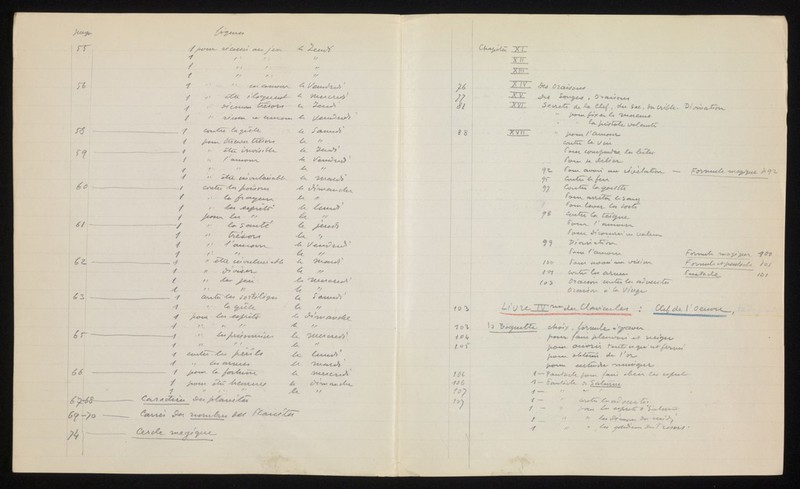 55
1 pour réussir au jeu le Jeudi
1 " " "
1 " " "
1 " " "
58 1 " en amour le Vendredi
1 " être éloquent le mercredi
1 " trésors le Jeudi
1 " amour le Vendredi
58 1 contre la grêle le Samedi
1 pour trésors le "
59 1 " être invisible le Jeudi
1 " l'amour le Vendredi
1 " " le "
1 " être invulnérable le mardi
60 1 contre les poisons le dimanche
1 " la frayeur le "
1 " les esprits le Lundi
1 pour les " le "
61 1 " la santé le jeudi
1 " trésors le "
1 " l'amour le Vendredi
1 " " le "
62 1 " être invulnérable le mardi
1 " le "
1 " le jeu le mercredi
1 " " le "
63 1 contre les sortilèges le Samedi
1 " la grêle le "
1 pour les esprits le Dimanche
1 " " le "
65 1 " les prisonniers le mercredi
1 " " le "
1 contre les périls le lundi
1 " les armes le mardi
66 1 pour la fortune le mercredi
1 pour être heureux le Dimanche
1 " le "
67-68 Caractères des planètes
69-70 Carrés des nombres des Planètes
74 Cercle magique
Chapitre XI
XII
XIII
76 XIV Des Oraisons
77 XV Des Songes, Oraisons
81 XVI Secrets de la Clef, du Sas, du crible. Divination
" pour fixer le mercure
" la pistole volante
88 XVII " pour l'amour
contre le vin
92 Pour avoir une révélation — Formule magique 92
95 Contre le feu
97 Contre la goutte
Pour arrêter le sang
98 Contre la teigne
Pour l'amour
Pour découvrir un voleur
99 Divination
Pour l'amour Formule magique
100 Pour avoir une vision Formule et pentacle 101
102 contre les armes Pentacle 101
102 Oraison contre les adversités
Oraison à la Vierge
103 Livre IV ème des Clavicules : Clef de l'oeuvre.
103 La Baguette choix, formule, vigueur
104 pour faire pleuvoir et neiger
105 pour ouvrir tout ce qui est fermé
pour obtenir de l'or
pour entendre musique
106 1 — Pentacle pour faire obéir les esprits
106 1 — Pentacle de Saturne
107 1 — " "
107 1 — " contre les adversités
1 — " pour les esprits de Saturne
1 — " " les Démons du midi
1 — " " les gardiens des Trésors